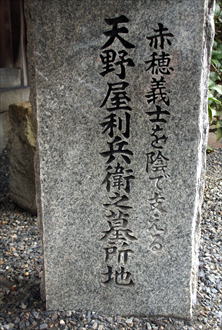 赤穂義士を陰でささえる
天野屋利兵衛之墓所地